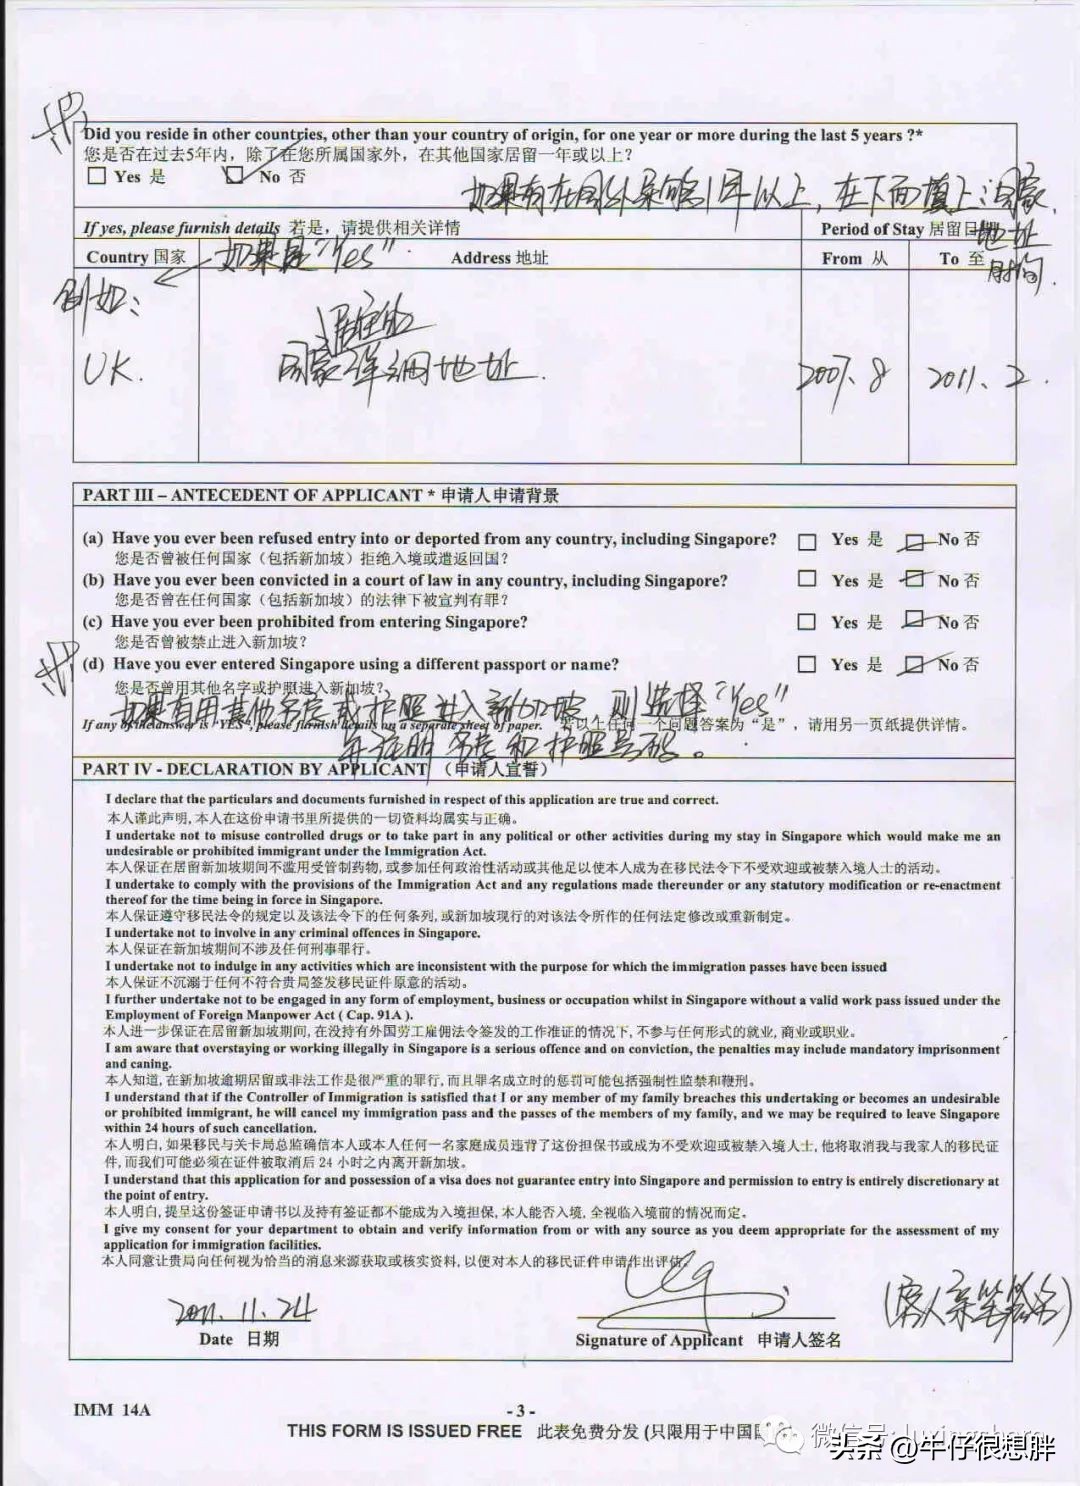 Did you reside in other countries, other than your country of origin, for one year or more during the last 5 years ?*
您是否在过去5年内，除了在您所属国家外，在其他国家居留一年或以上？
Yes 是 No 否
如果有在国外呆满1年以上，在下面填上：国家.
地址
时间.
If yes, please furnish details 若是，请提供相关详情
Period of Stay 居留日
Country 国家
如果是"Yes"
Address 地址
From 从
To 至
例如：
居住的
UK.
国家详细地址.
2007.8
2011.2.
PART III – ANTECEDENT OF APPLICANT * 申请人申请背景
(a) Have you ever been refused entry into or deported from any country, including Singapore? Yes 是 No 否
您是否曾被任何国家（包括新加坡）拒绝入境或遣返回国？
(b) Have you ever been convicted in a court of law in any country, including Singapore? Yes 是 No 否
您是否曾在任何国家（包括新加坡）的法律下被宣判有罪？
(c) Have you ever been prohibited from entering Singapore? Yes 是 No 否
您是否曾被禁止进入新加坡？
(d) Have you ever entered Singapore using a different passport or name? Yes 是 No 否
您是否曾用其他名字或护照进入新加坡？
如果有用其他名字或护照进入新加坡，则选择"Yes"
If any of the answer is "YES", please furnish details on a separate sheet of paper. 若以上任何一个问题答案为“是”，请用另一页纸提供详情。
并注明名字和护照号码。
PART IV - DECLARATION BY APPLICANT （申请人宣誓）
I declare that the particulars and documents furnished in respect of this application are true and correct.
本人谨此声明, 本人在这份申请书里所提供的一切资料均属实与正确。
I undertake not to misuse controlled drugs or to take part in any political or other activities during my stay in Singapore which would make me an
undesirable or prohibited immigrant under the Immigration Act.
本人保证在居留新加坡期间不滥用受管制药物, 或参加任何政治性活动或其他足以使本人成为在移民法令下不受欢迎或被禁入境人士的活动。
I undertake to comply with the provisions of the Immigration Act and any regulations made thereunder or any statutory modification or re-enactment
thereof for the time being in force in Singapore.
本人保证遵守移民法令的规定以及该法令下的任何条列, 或新加坡现行的对该法令所作的任何法定修改或重新制定。
I undertake not to involve in any criminal offences in Singapore.
本人保证在新加坡期间不涉及任何刑事罪行。
I undertake not to indulge in any activities which are inconsistent with the purpose for which the immigration passes have been issued
本人保证不沉溺于任何不符合贵局签发移民证件原意的活动。
I further undertake not to be engaged in any form of employment, business or occupation whilst in Singapore without a valid work pass issued under the
Employment of Foreign Manpower Act ( Cap. 91A ).
本人进一步保证在居留新加坡期间, 在没持有外国劳工雇佣法令签发的工作准证的情况下, 不参与任何形式的就业, 商业或职业。
I am aware that overstaying or working illegally in Singapore is a serious offence and on conviction, the penalties may include mandatory imprisonment
and caning.
本人知道, 在新加坡逾期居留或非法工作是很严重的罪行, 而且罪名成立时的惩罚可能包括强制性监禁和鞭刑。
I understand that if the Controller of Immigration is satisfied that I or any member of my family breaches this undertaking or becomes an undesirable
or prohibited immigrant, he will cancel my immigration pass and the passes of the members of my family, and we may be required to leave Singapore
within 24 hours of such cancellation.
本人明白, 如果移民与关卡局总监确信本人或本人任何一名家庭成员违背了这份担保书或成为不受欢迎或被禁入境人士, 他将取消我与我家人的移民证
件, 而我们可能必须在证件被取消后 24 小时之内离开新加坡。
I understand that this application for and possession of a visa does not guarantee entry into Singapore and permission to entry is entirely discretionary at
the point of entry.
本人明白, 提呈这份签证申请书以及持有签证都不能成为入境担保, 本人能否入境, 全视临入境前的情况而定。
I give my consent for your department to obtain and verify information from or with any source as you deem appropriate for the assessment of my
application for immigration facilities.
本人同意让贵局向任何视为恰当的消息来源获取或核实资料, 以便对本人的移民证件申请作出评估。
2011.11.24
（客人亲笔签名）
Date 日期
Signature of Applicant 申请人签名
IMM 14A
- 3 -
THIS FORM IS ISSUED FREE 此表免费分发 (只限用于中国
微信号:
头条 @牛仔很想胖